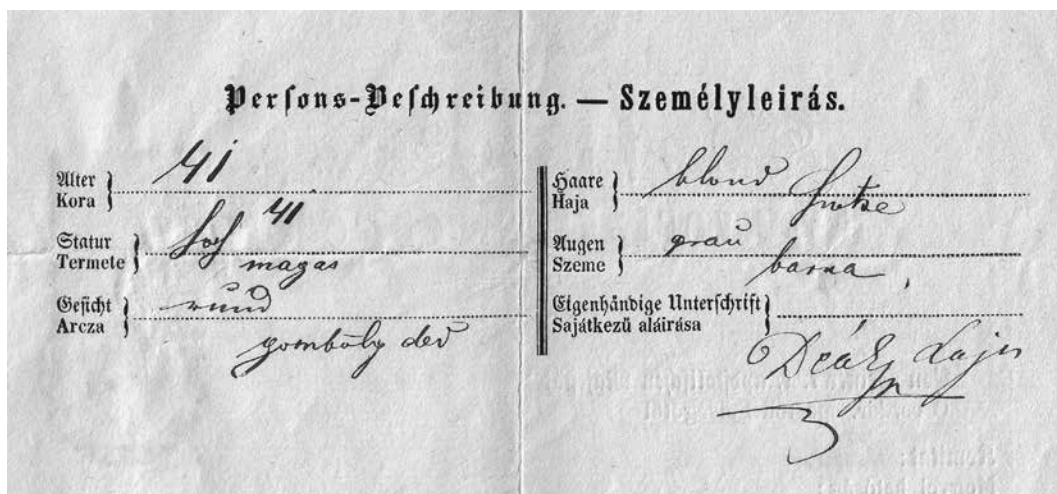 Persons-Beschreibung. — Személyleirás.
Alter
Kora
41
41
Statur
Termete
hoch
magas
Gesicht
Arcza
rund
gömbölyded
Haare
Haja
blond
szőke
Augen
Szeme
grau
barna
Eigenhändige Unterschrift
Sajátkezű aláirása
Deák Lajos